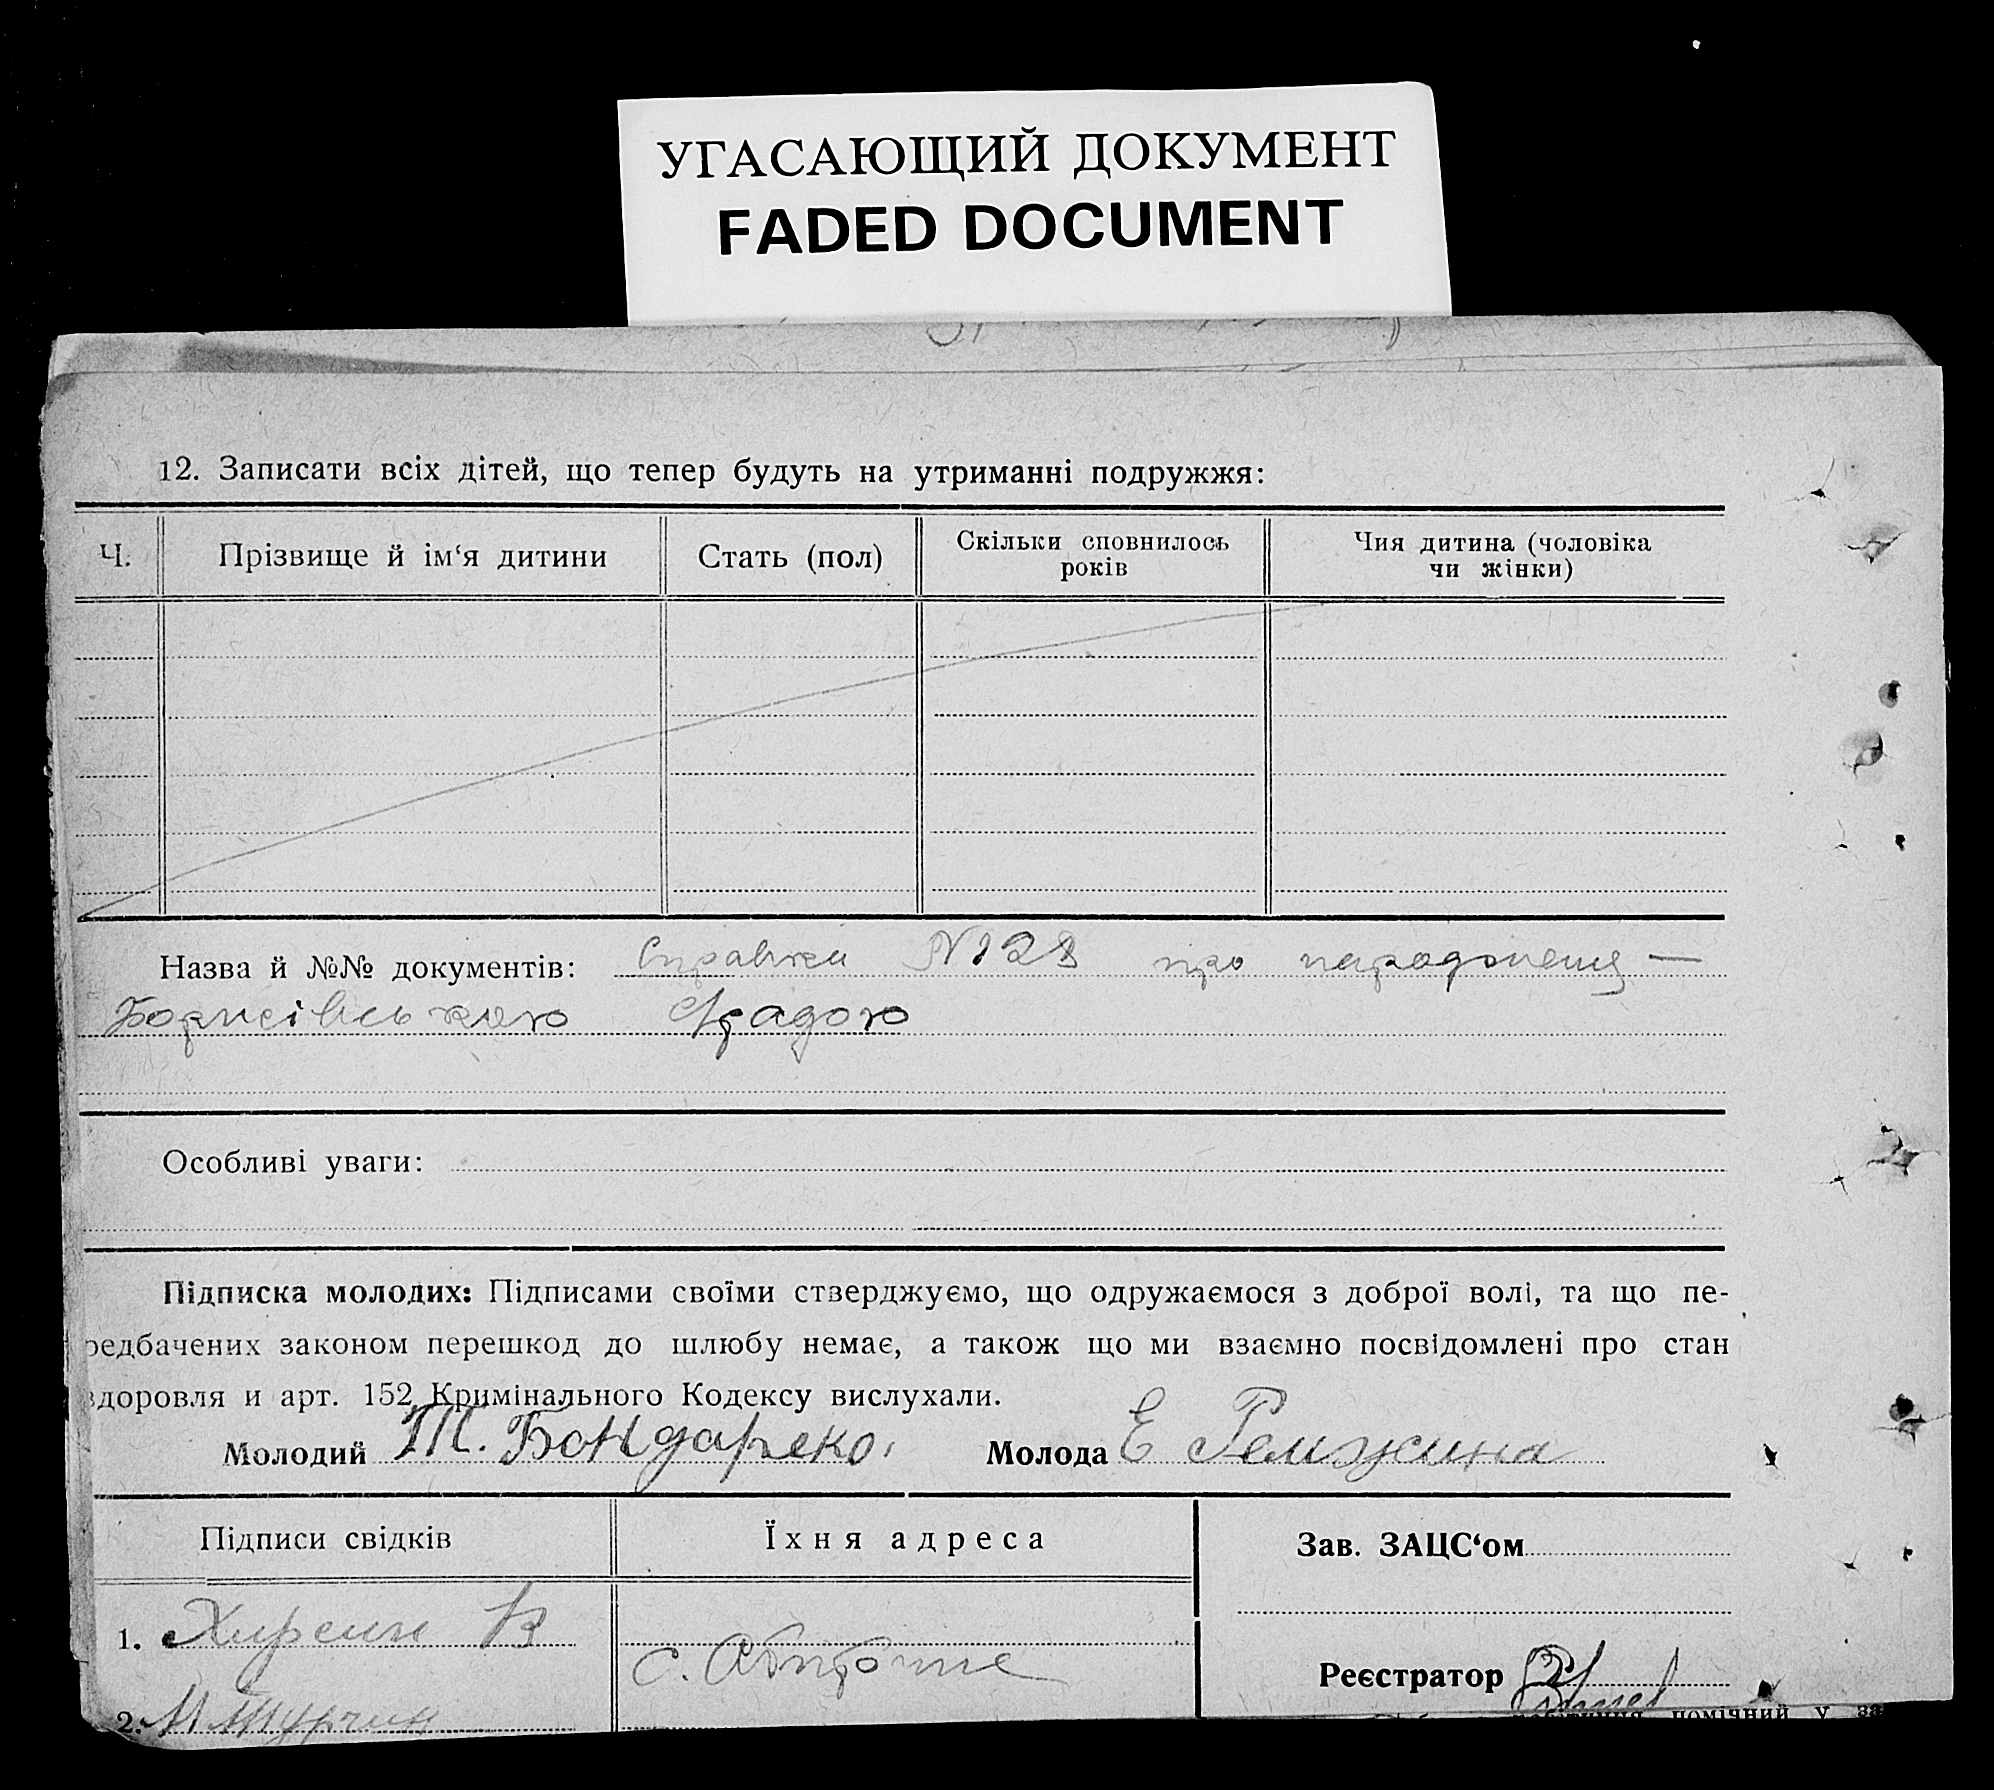 УГАСАЮЩИЙ ДОКУМЕНТ
FADED DOCUMENT
12. Записати всіх дітей, що тепер будуть на утриманні подружжя:
Ч. Прізвище й ім‘я дитини Стать (пол) Скільки сповнилось років Чия дитина (чоловіка чи жінки)
Назва й №№ документів: Справка №128 про народження —
Борисівською С/радою
Особливі уваги:
Підписка молодих: Підписами своїми стверджуємо, що одружаємося з доброї волі, та що пе-
редбачених законом перешкод до шлюбу немає, а також що ми взаємно посвідомлені про стан
здоровля и арт. 152 Кримінального Кодексу вислухали.
Молодий Т. Бондарєко. Молода Е Ремжина
Підписи свідків Їхня адреса Зав. ЗАЦС‘ом
1. В
с.
Реєстратор
2. М
помічний у